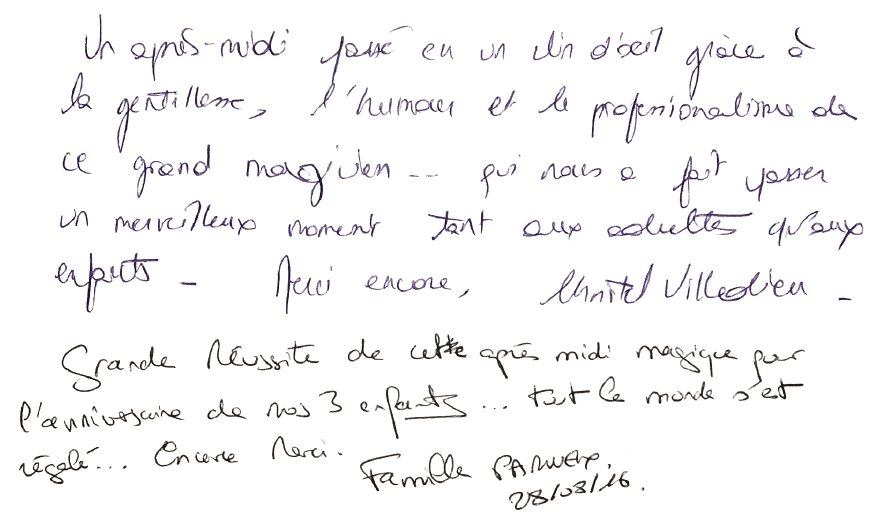 Un après-midi passé en un clin d'oeil grâce à
la gentillesse, l'humour et le professionalisme de
ce grand magicien -- qui nous a fait passer
un merveilleux moment tant aux adultes qu'aux
enfants - Merci encore, Villedieu -
Grande réussite de cette après midi magique pour
l'anniversaire de nos 3 enfants... tout le monde s'est
régalé... Encore Merci. Famille
28/08/16.